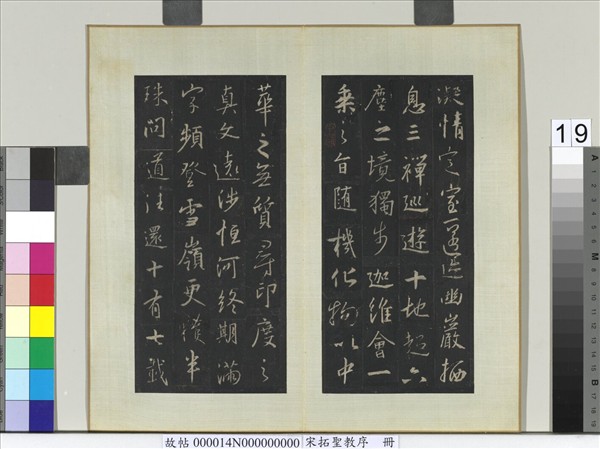 凝情定室匿迹幽巖栖
息三禪巡遊十地超六
塵之境獨步迦維會一
乘之旨随機化物以中
華之無質尋印度之
真文遠涉恒河終期滿
字頻登雪嶺更獲半
珠問道往還十有七載
19
A
M
B
故帖 000014N000000000 宋拓聖教序 冊